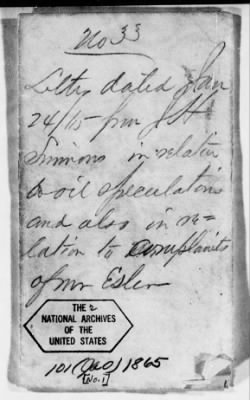 No 33
Letter dated Jan
24/65 from J H
Simmons in relation
to oil speculations
and also in re=
lation to complaints
of Mr Esler
THE 2
NATIONAL ARCHIVES
OF THE
UNITED STATES
101 (   ) 1865
[No. 1]